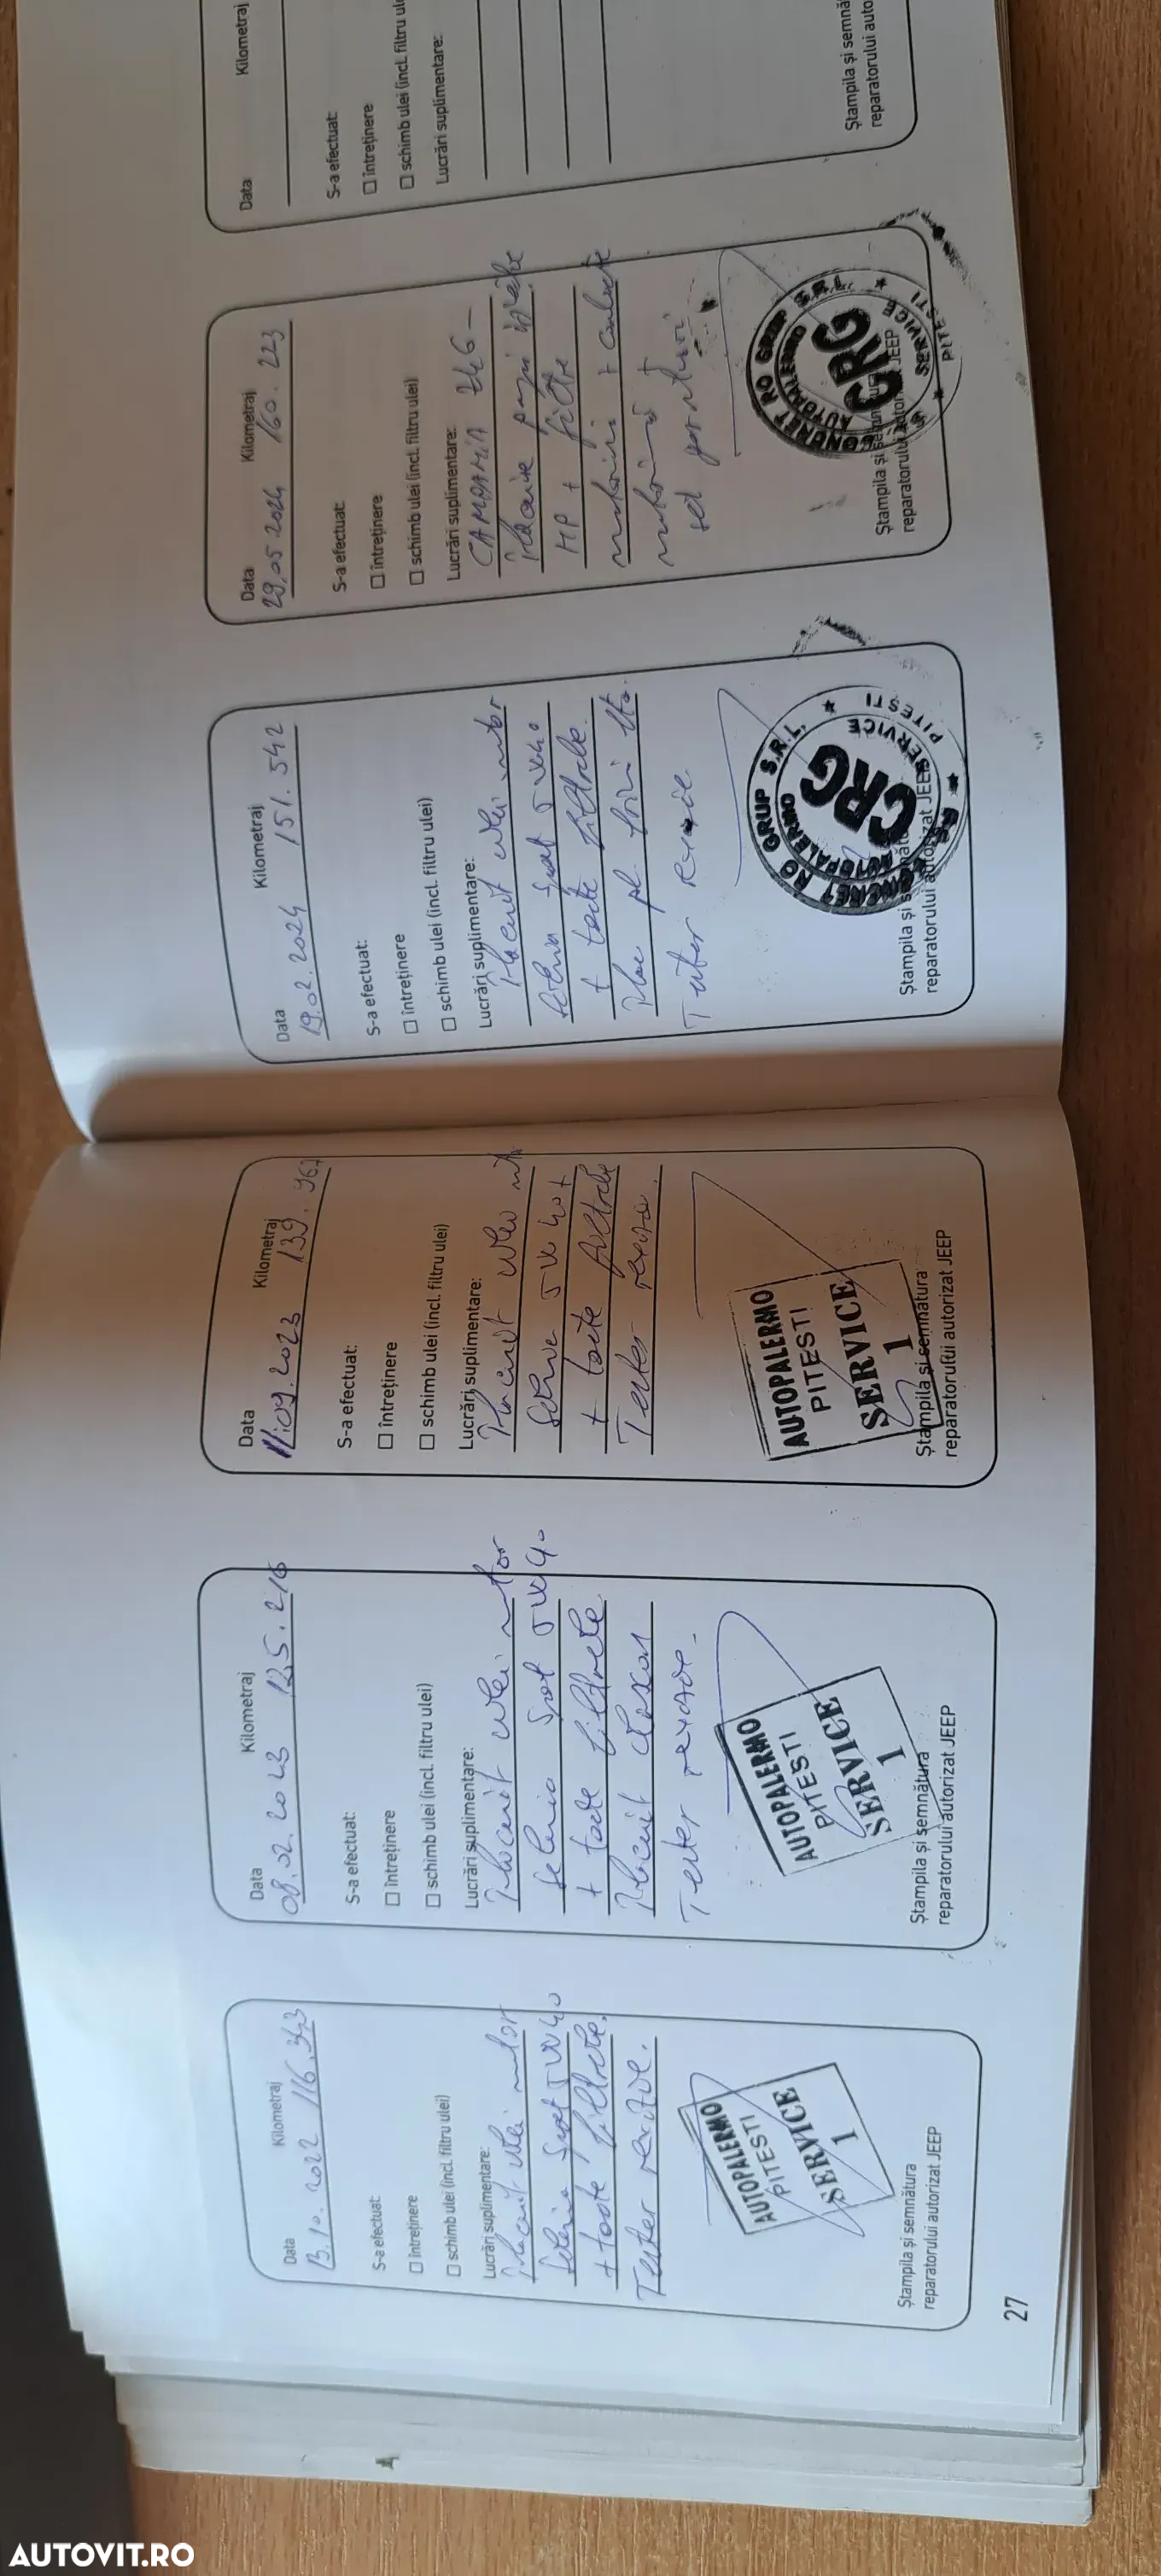 Data Kilometraj
13.10.2022 116.343
S-a efectuat:
întreținere
schimb ulei (incl. filtru ulei)
Lucrări suplimentare:
Inlocuit ulei motor
Selenia 5W40
+ toate filtrele.
Tester rextore.
AUTOPALERMO
PITESTI
SERVICE
1
Ștampila și semnătura
reparatorului autorizat JEEP
27
Data Kilometraj
08.02.2023 125.216
S-a efectuat:
întreținere
schimb ulei (incl. filtru ulei)
Lucrări suplimentare:
Inlocuit ulei motor
Selenia 5W40
+ toate filtrele
Inlocuit
Tester
AUTOPALERMO
PITESTI
SERVICE
1
Ștampila și semnătura
reparatorului autorizat JEEP
Data Kilometraj
11.09.2023 139.967
S-a efectuat:
întreținere
schimb ulei (incl. filtru ulei)
Lucrări suplimentare:
Inlocuit ulei
5W40+
+ toate filtrele
Tester
AUTOPALERMO
PITESTI
SERVICE
1
Ștampila și semnătura
reparatorului autorizat JEEP
Data Kilometraj
19.02.2024 151.542
S-a efectuat:
întreținere
schimb ulei (incl. filtru ulei)
Lucrări suplimentare:
Inlocuit ulei motor
5W40
+ toate filtrele.
pl.
Tester
CONCRET RO GRUP S.R.L.
AUTOPALERMO
CRG
SERVICE
PITESTI
Ștampila și semnătura
reparatorului autorizat JEEP
Data Kilometraj
29.05.2024 160.223
S-a efectuat:
întreținere
schimb ulei (incl. filtru ulei)
Lucrări suplimentare:
CAMPANIA
HP + filtre
+
set
CONCRET RO GRUP S.R.L.
AUTOPALERMO
CRG
SERVICE
PITESTI
Ștampila și semnătura
reparatorului autorizat JEEP
Data Kilometraj
S-a efectuat:
întreținere
schimb ulei (incl. filtru ulei)
Lucrări suplimentare:
Ștampila și semnă
reparatorului auto
AUTOVIT.RO